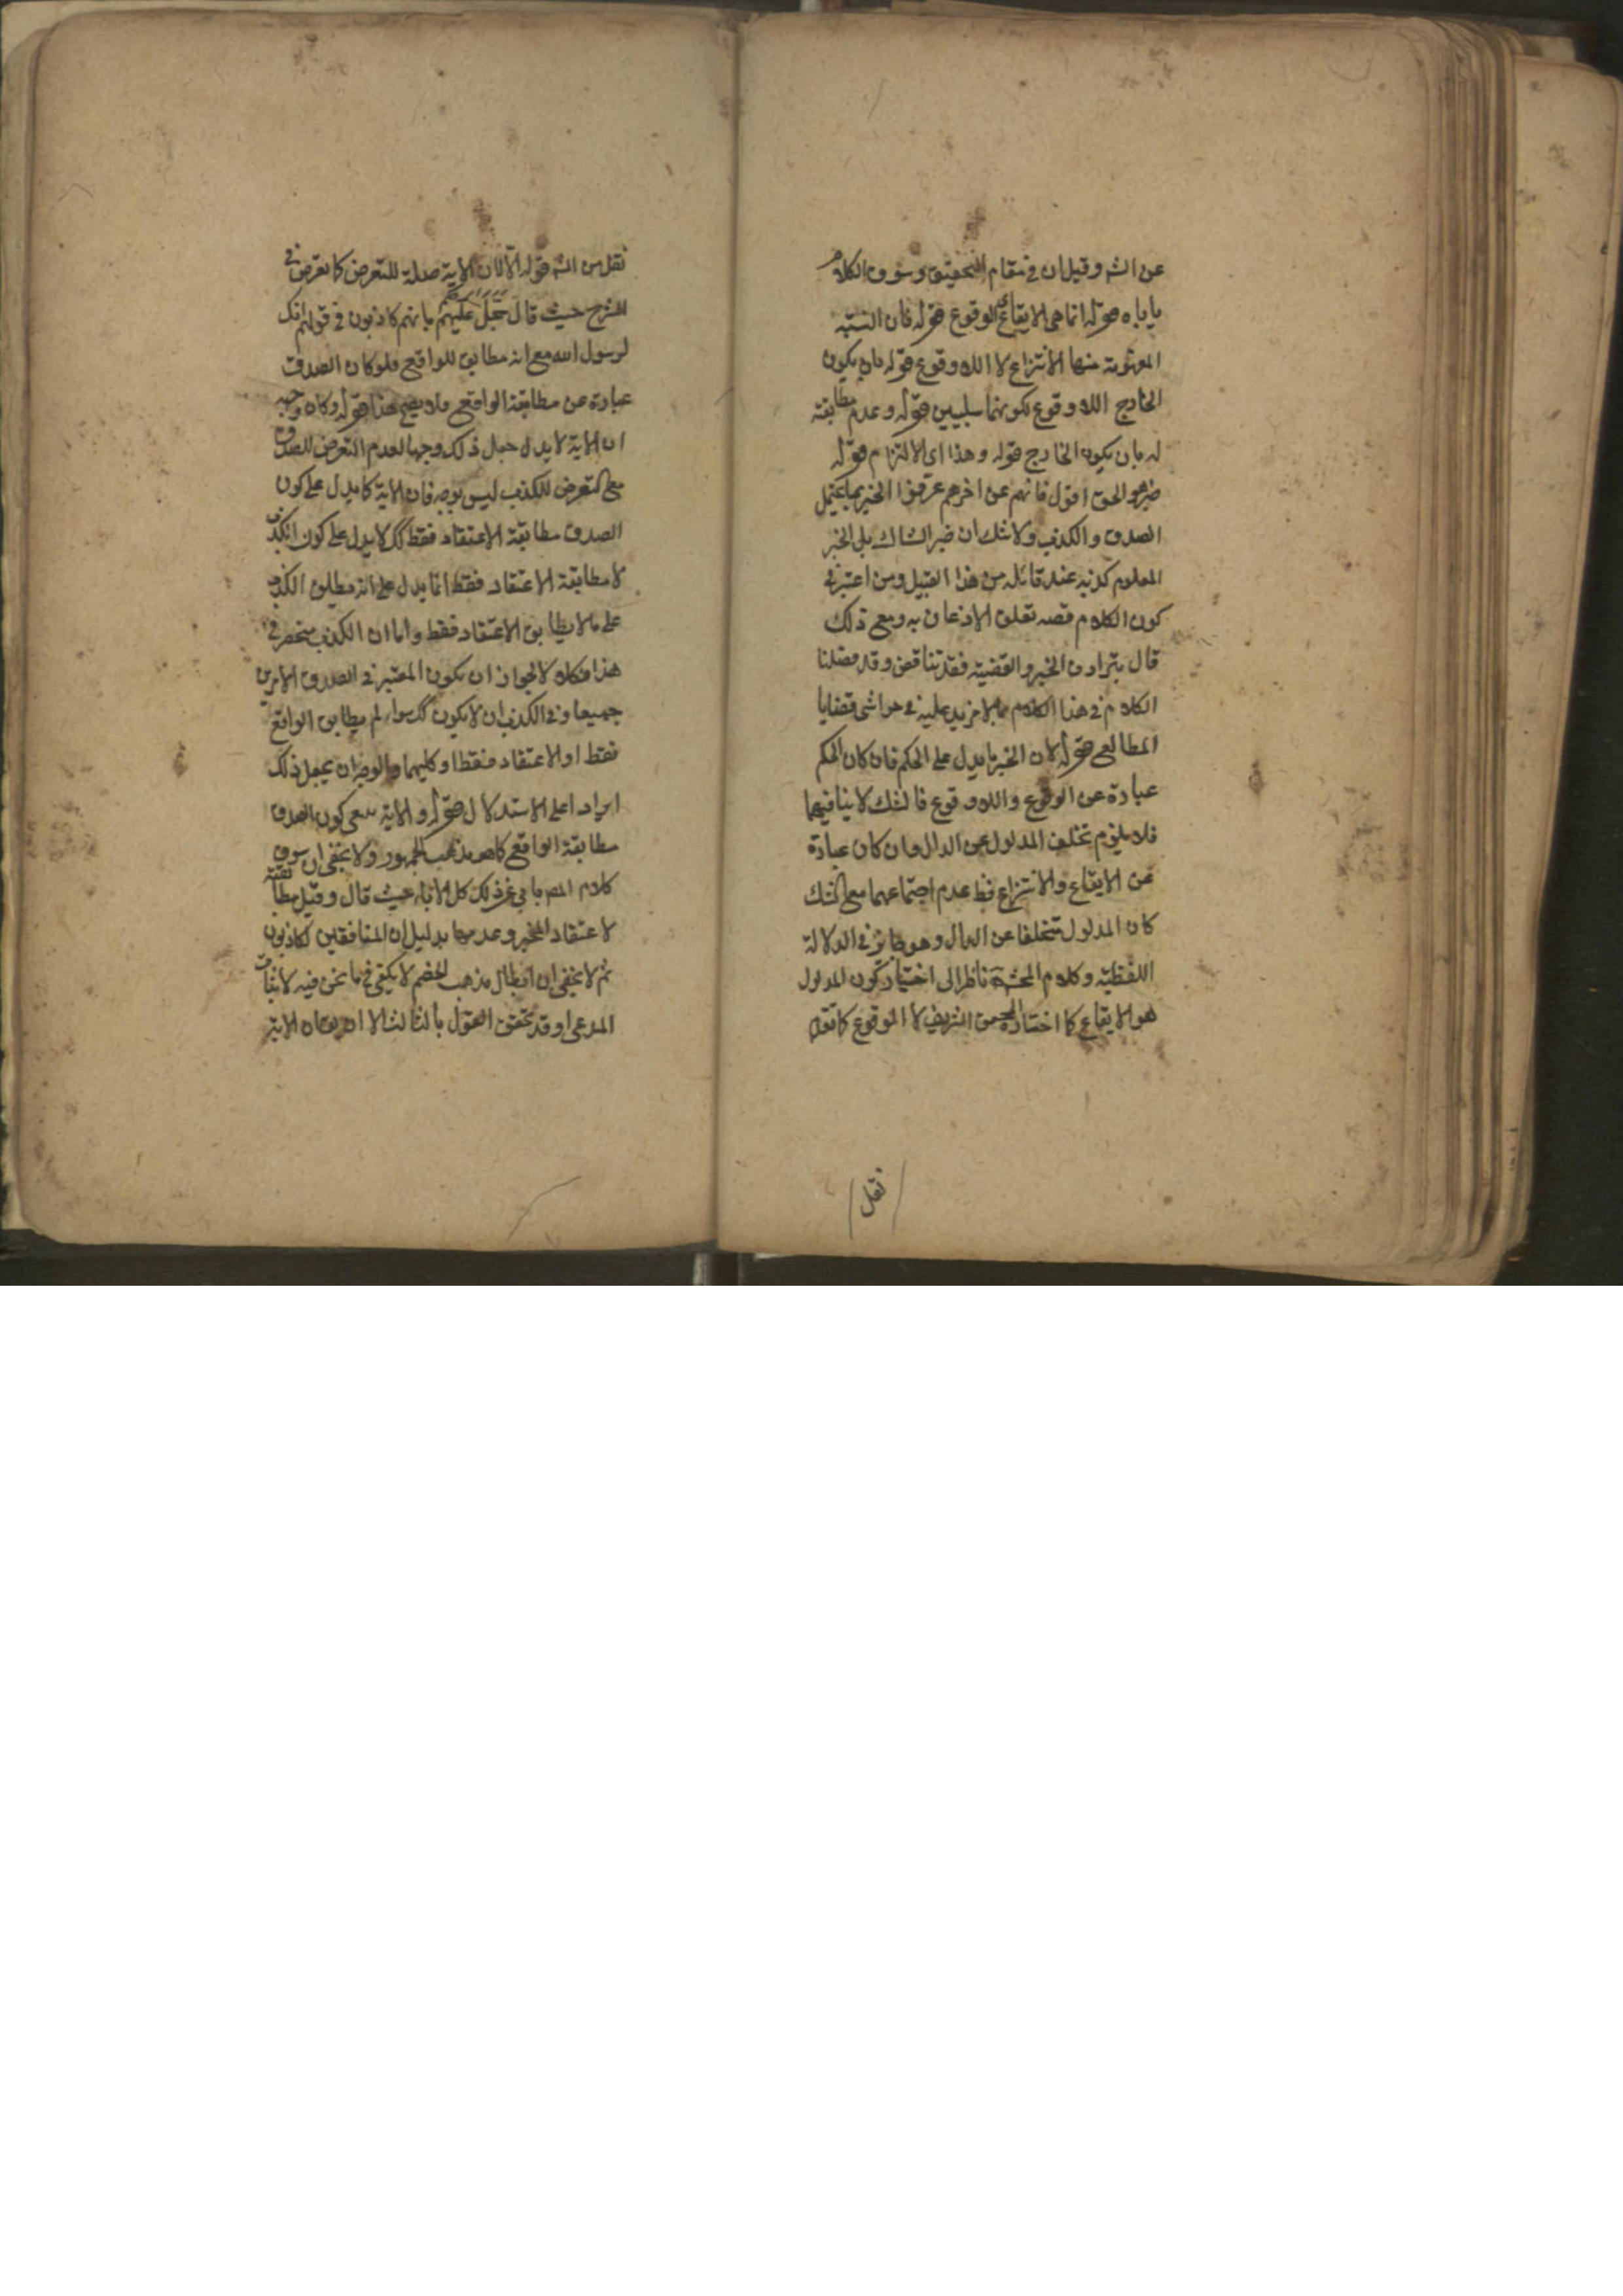 عن الشه وقيل ان في مقام التحقيق وسوق الكلام
ياباه قوله انما هى الايقاع لا الوقوع قوله فان النسبة
المفهومة منها الانتزاع لا اللاوقوع قوله بان يكون
الخارج اللاوقوع لكونهما سلبيين قوله وعدم مطابقة
له بان يكون الخارج قوله وهذا اى الالتزام قوله
هو الحق اقول فانهم عن اخرهم عرفوا الخبر بما يحتمل
الصدق والكذب ولا شك ان خبر الشاك بل الخبر
المعلوم كذبه عند قائله من هذا القبيل ومن اعتبر في
كون الكلام قصه تعلق الاذعان به ومع ذلك
قال بترادف الخبر والقضية فقد تناقض وقد فصلنا
الكلام في هذا الكلام بما لا مزيد عليه في حواشى قضايا
المطالع قوله لان الخبر ما يدل على الحكم فان كان الحكم
عبارة عن الوقوع واللاوقوع فالشك لا ينافيهما
فلا يلزم تخلف المدلول عن الدال وان كان عبارة
عن الايقاع والانتزاع فبط عدم اجتماعهما مع الشك
كان المدلول متخلفا عن الدال وهو جائز في الدلالة
اللفظية وكلام المحشى ناظر الى اختيار كون المدلول
هو الايقاع كما اختاره الشريف لا الوقوع كما نقل
نقل
نقل من الشه قوله الا ان الاية صلة للتعرض كما تعرض في
الشرح حيث قال سجل عليهم بانهم كاذبون في قولهم انك
لرسول الله مع انه مطابق للواقع فلو كان الصدق
عبارة عن مطابقة الواقع فلا يصح هذا قوله وكان وجهه
ان الاية لا يدل جعل ذلك وجها لعدم التعرض للصدق
مع التعرض للكذب ليس بوجه فان الاية كما يدل على كون
الصدق مطابقة الاعتقاد فقط كك لا يدل على كون الكذب
لا مطابقة الاعتقاد فقط انما يدل على انه يطلق الكذب
على ما لا يطابق الاعتقاد فقط واما ان الكذب منحصر في
هذا فكلا لجواز ان يكون المعتبر في الصدق الامرين
جميعا وفي الكذب ان لا يكون كك سواء لم يطابق الواقع
فقط او الاعتقاد فقط او كليهما والوجه ان يجعل ذلك
ايرادا على الاستدلال قوله والاية كون الصدق
مطابقة الواقع كما هو مذهب الجمهور ولا يخفى ان سوق
كلام المص يابى عن ذلك كل الاباء حيث قال وقيل مطابقته
لاعتقاد المخبر وعدمها بدليل ان المنافقين لكاذبون
ثم لا يخفى ان ابطال مذهب الخصم لا يكفى فيما نحن فيه لاثبات
المدعى وقد تحقق القول بالثالث الا ان الاية